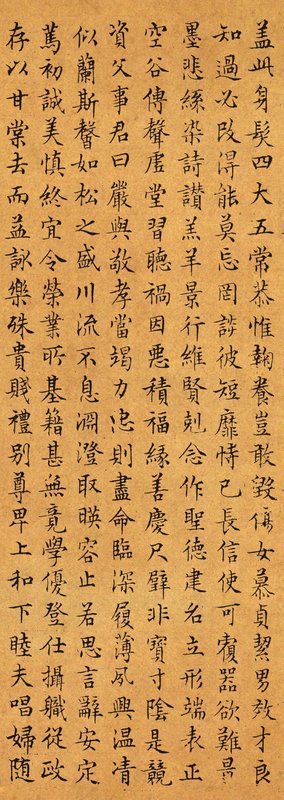 盖此身髮四大五常恭惟鞠養豈敢毀傷女慕貞絜男效才良
知過必改得能莫忘罔談彼短靡恃己長信使可覆器欲難量
墨悲絲染詩讚羔羊景行維賢剋念作聖德建名立形端表正
空谷傳聲虛堂習聽禍因惡積福緣善慶尺璧非寶寸陰是競
資父事君曰嚴與敬孝當竭力忠則盡命臨深履薄夙興温凊
似蘭斯馨如松之盛川流不息淵澄取暎容止若思言辭安定
篤初誠美慎終宜令榮業所基籍甚無竟學優登仕攝職從政
存以甘棠去而益詠樂殊貴賤禮別尊卑上和下睦夫唱婦隨